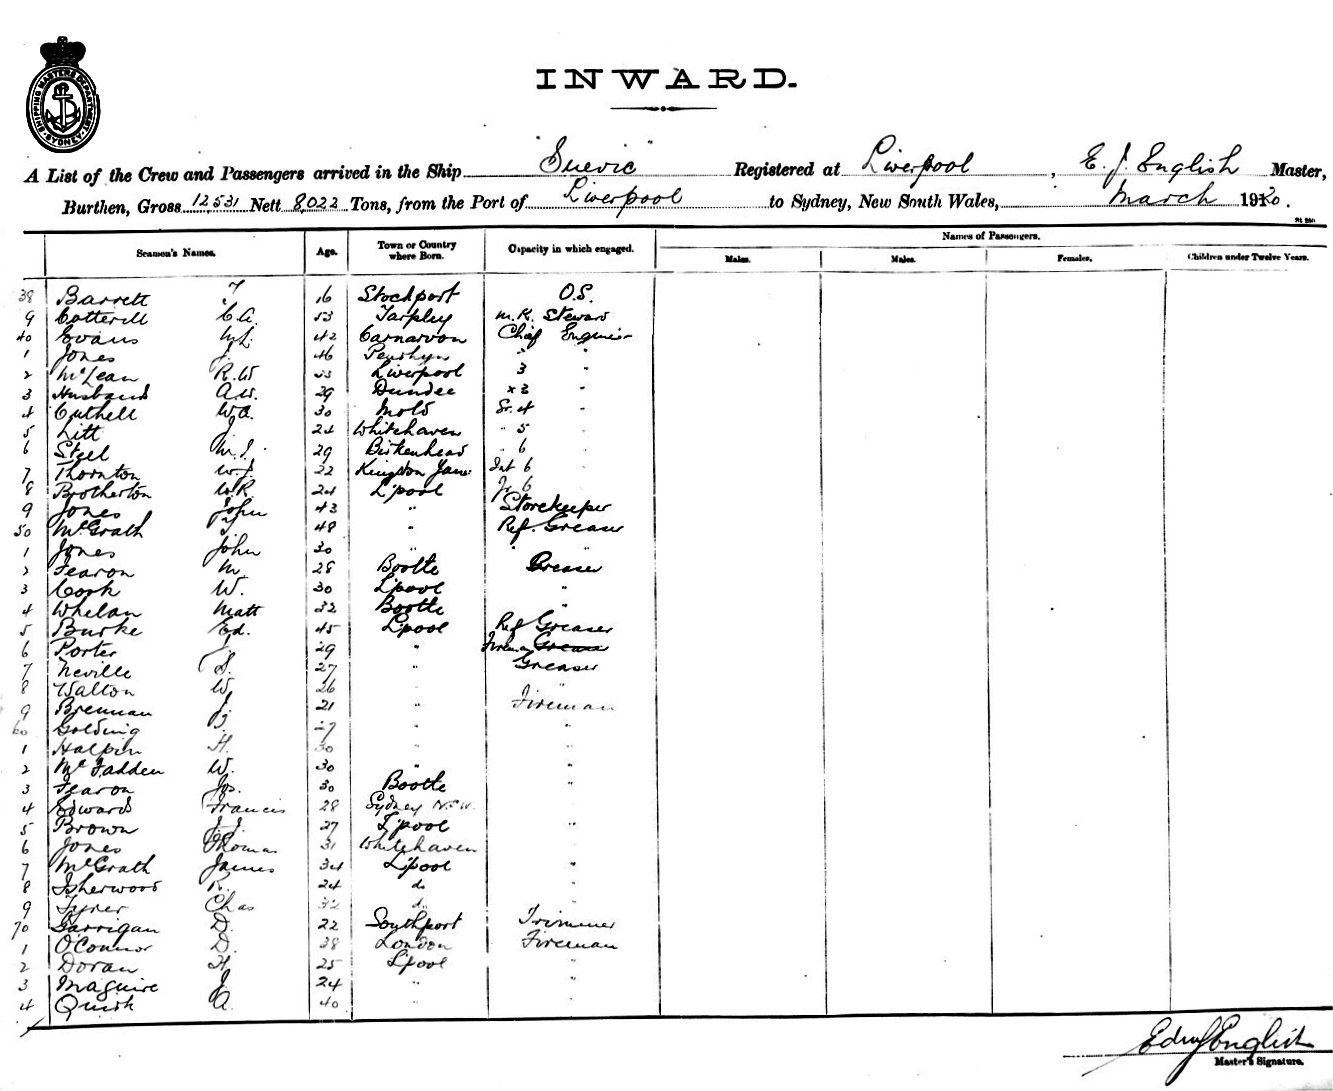 SHIPPING MASTERS DEPARTMENT SYDNEY
INWARD.
A List of the Crew and Passengers arrived in the Ship "Suevic" Registered at Liverpool, E. J. English Master,
Burthen, Gross 12531 Nett 8022 Tons, from the Port of Liverpool to Sydney, New South Wales, March 1920.
Seamen's Names. Age. Town or Country where Born. Capacity in which engaged. Names of Passengers.
Males. Males. Females. Children under Twelve Years.
38 Barrett T 16 Stockport O.S.
9 Cotterill C.A. 53 Tarpley M.R. Steward
40 Evans M.L. 42 Carnarvon Chief Engineer
1 Jones J. 46 Penrhyn " "
2 McLean R.W 33 Liverpool 3 "
3 Husband A.W. 29 Dundee x3 "
4 Cuthell W.A. 30 Mold Sr. 4 "
5 Litt J 24 Whitehaven " 5 "
6 Steel M.J. 29 Birkenhead " 6
7 Thornton W.J. 22 Kingston Jam: Int 6
8 Brotherton W.R. 24 L'pool Jr 6
9 Jones John 43 " Storekeeper
50 McGrath J 48 " Ref. Greaser
1 Jones John 30 " " "
2 Fearon M 28 Bootle Greaser
3 Cook W. 30 L'pool "
4 Whelan Matt 32 Bootle "
5 Burke Ed. 45 L'pool Ref Greaser
6 Porter J 29 " Fireman Greaser
7 Neville S. 27 " Greaser
8 Walton W. 26 " "
9 Brennan J. 21 " Fireman
60 Golding J. 27 " "
1 Halpin H. 30 " "
2 McFadden W. 30 " "
3 Fearon Jos. 30 Bootle "
4 Edwards Francis 28 Sydney N.S.W. "
5 Brown 27 L'pool "
6 Jones Thomas 31 Whitehaven "
7 McGrath James 34 L'pool "
8 Isherwood R. 24 do "
9 Tyrer Chas 32 do "
70 Garrigan D. 22 Southport Trimmer
1 O'Connor D. 38 London Fireman
2 Doran H. 25 L'pool "
3 Maguire J. 24 " "
4 Quirk A. 40 " "
Edw J English
Master's Signature.